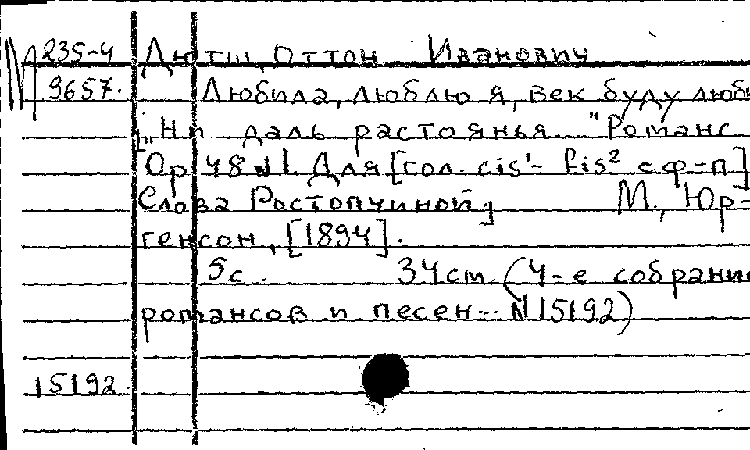 М 235-4 Дютш, Оттон Иванович
9657. Любила, люблю я, век буду люби
„Ни даль растоянья..." Романс
Op 48 N1. Для [гол. cis¹- fis² с ф-п]
Слова Ростопчиной] М., Юр-
генсон, [1894].
5с. 34cm (4-е собрание
романсов и песен-- N15192)
15192.